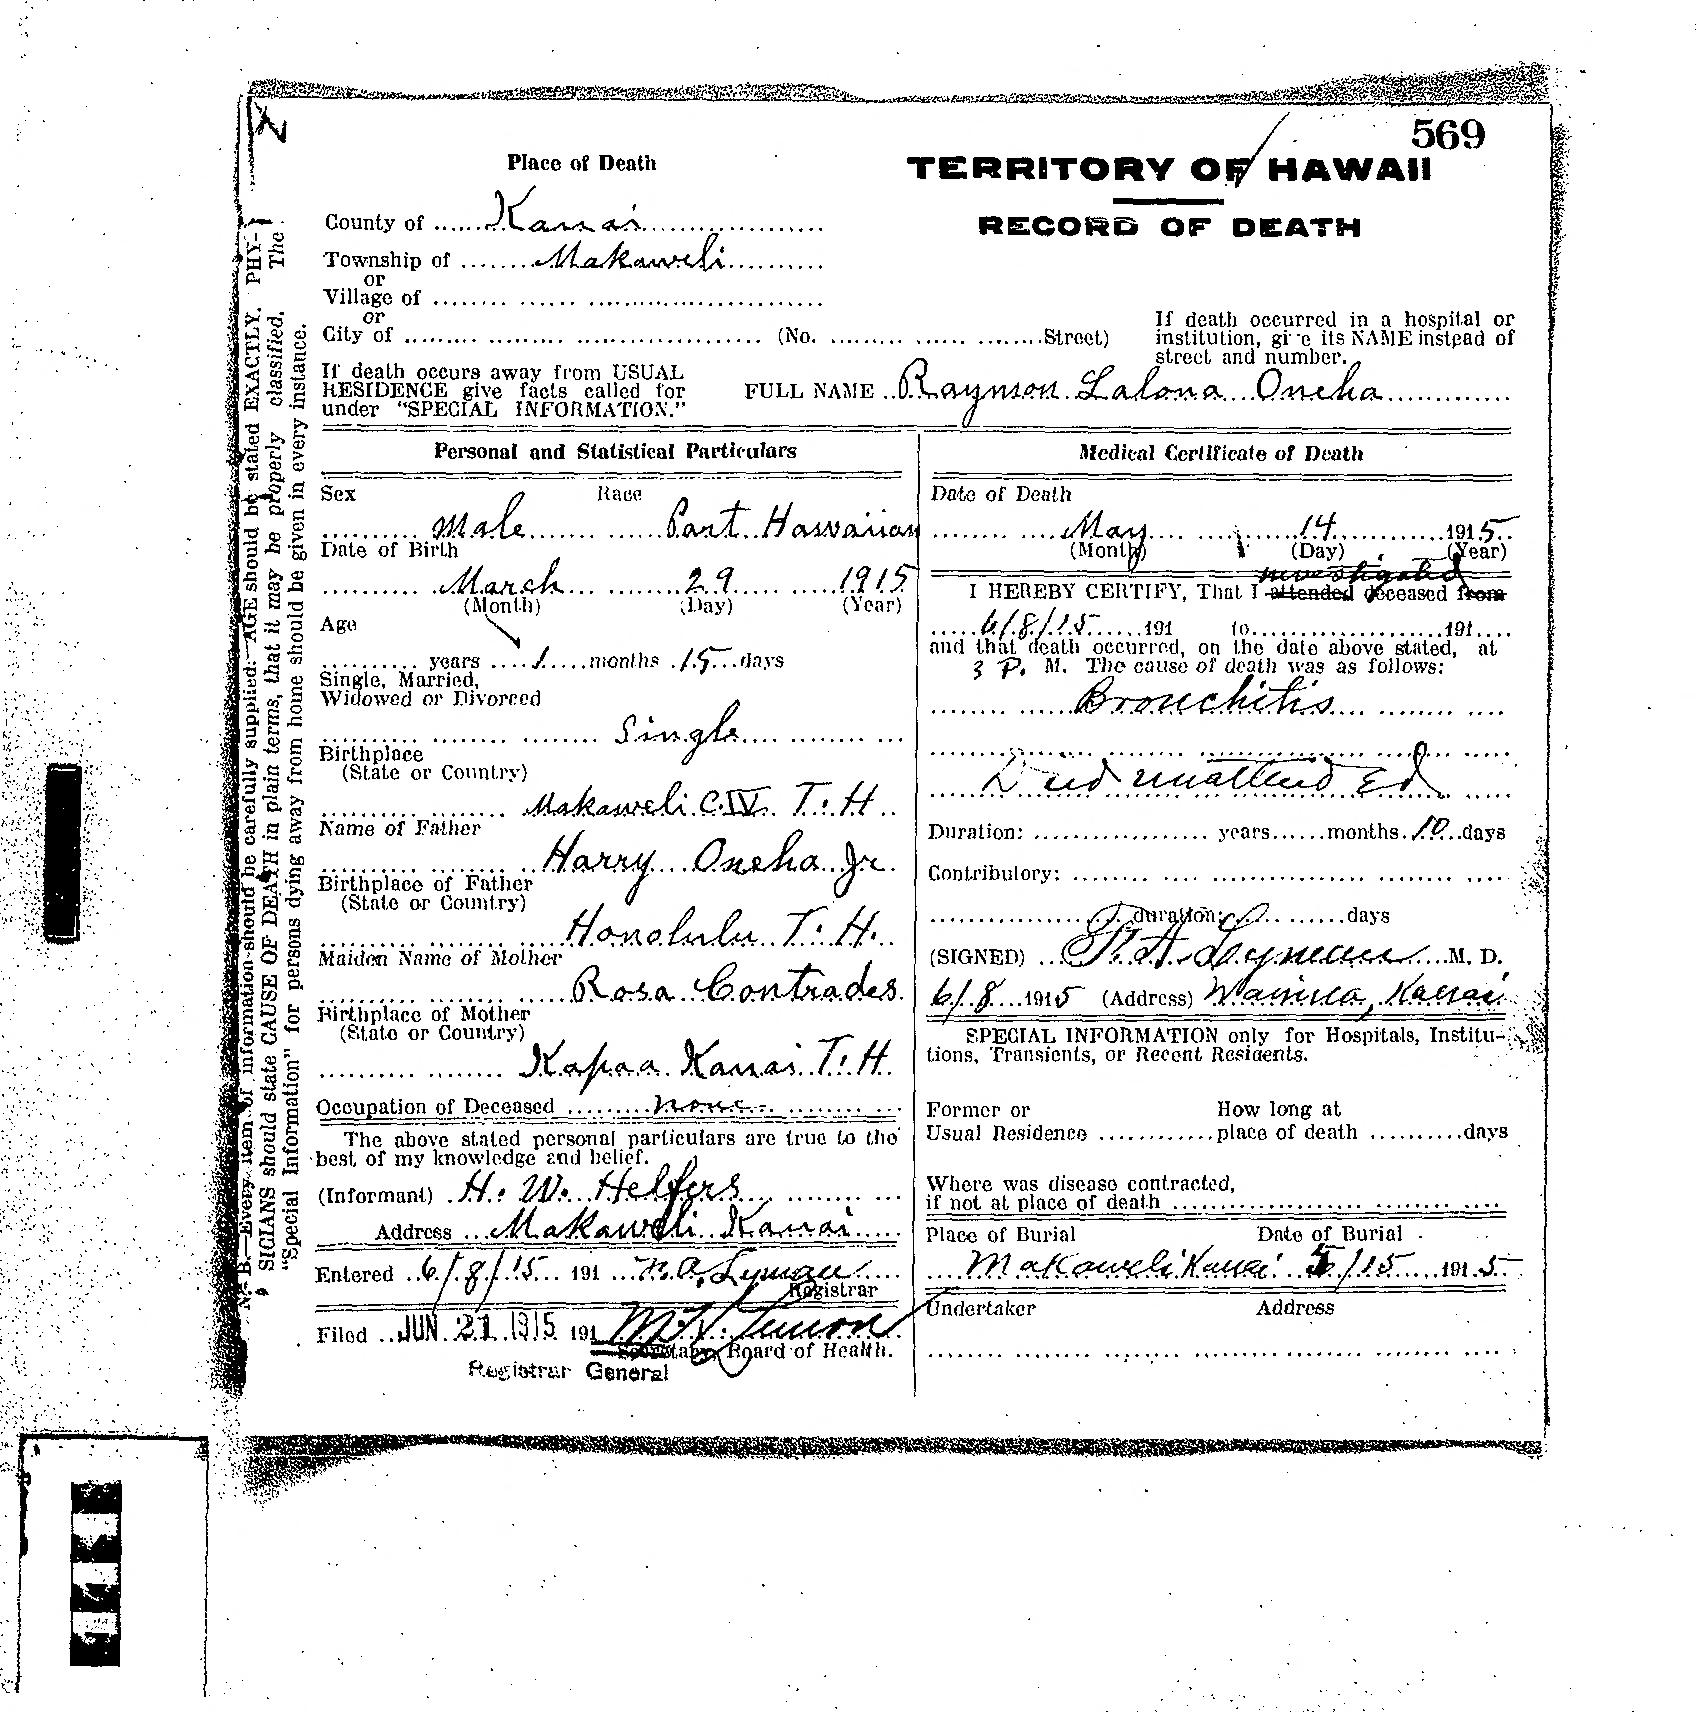 569
Place of Death
TERRITORY OF HAWAII
RECORD OF DEATH
County of Kauai
Township of Makaweli
or
Village of
or
City of (No. Street)
If death occurred in a hospital or
institution, give its NAME instead of
street and number.
If death occurs away from USUAL
RESIDENCE give facts called for
under "SPECIAL INFORMATION."
FULL NAME Raymon Lalona Oneha
Personal and Statistical Particulars
Sex Race
Male Part Hawaiian
Date of Birth
March 29 1915
(Month) (Day) (Year)
Age
years 1 months 15 days
Single, Married,
Widowed or Divorced
Single
Birthplace
(State or Country)
Makaweli C.IV. T.H.
Name of Father
Harry Oneha Jr.
Birthplace of Father
(State or Country)
Honolulu T.H.
Maiden Name of Mother
Rosa Contrades
Birthplace of Mother
(State or Country)
Kapaa Kauai T.H.
Occupation of Deceased none
The above stated personal particulars are true to the
best of my knowledge and belief.
(Informant) H. W. Helfers
Address Makaweli Kauai
Entered 6/8/15 191 F. A. Lyman
Registrar
Filed JUN 21 1915 191
Secretary, Board of Health.
Registrar General
Medical Certificate of Death
Date of Death
May 14 1915
(Month) (Day) (Year)
investigated
I HEREBY CERTIFY, That I attended deceased from
6/8/15 191 to 191
and that death occurred, on the date above stated, at
3 P. M. The cause of death was as follows:
Bronchitis
Died unattended
Duration: years months 10 days
Contributory:
duration: days
(SIGNED) F. A. Lyman M. D.
6/8 1915 (Address) Waimea, Kauai
SPECIAL INFORMATION only for Hospitals, Institu-
tions, Transients, or Recent Residents.
Former or How long at
Usual Residence place of death days
Where was disease contracted,
if not at place of death
Place of Burial Date of Burial
Makaweli Kauai 5/15 1915
Undertaker Address
N. B.—Every item of information should be carefully supplied. AGE should be stated EXACTLY. PHY-
SICIANS should state CAUSE OF DEATH in plain terms, that it may be properly classified. The
"Special Information" for persons dying away from home should be given in every instance.